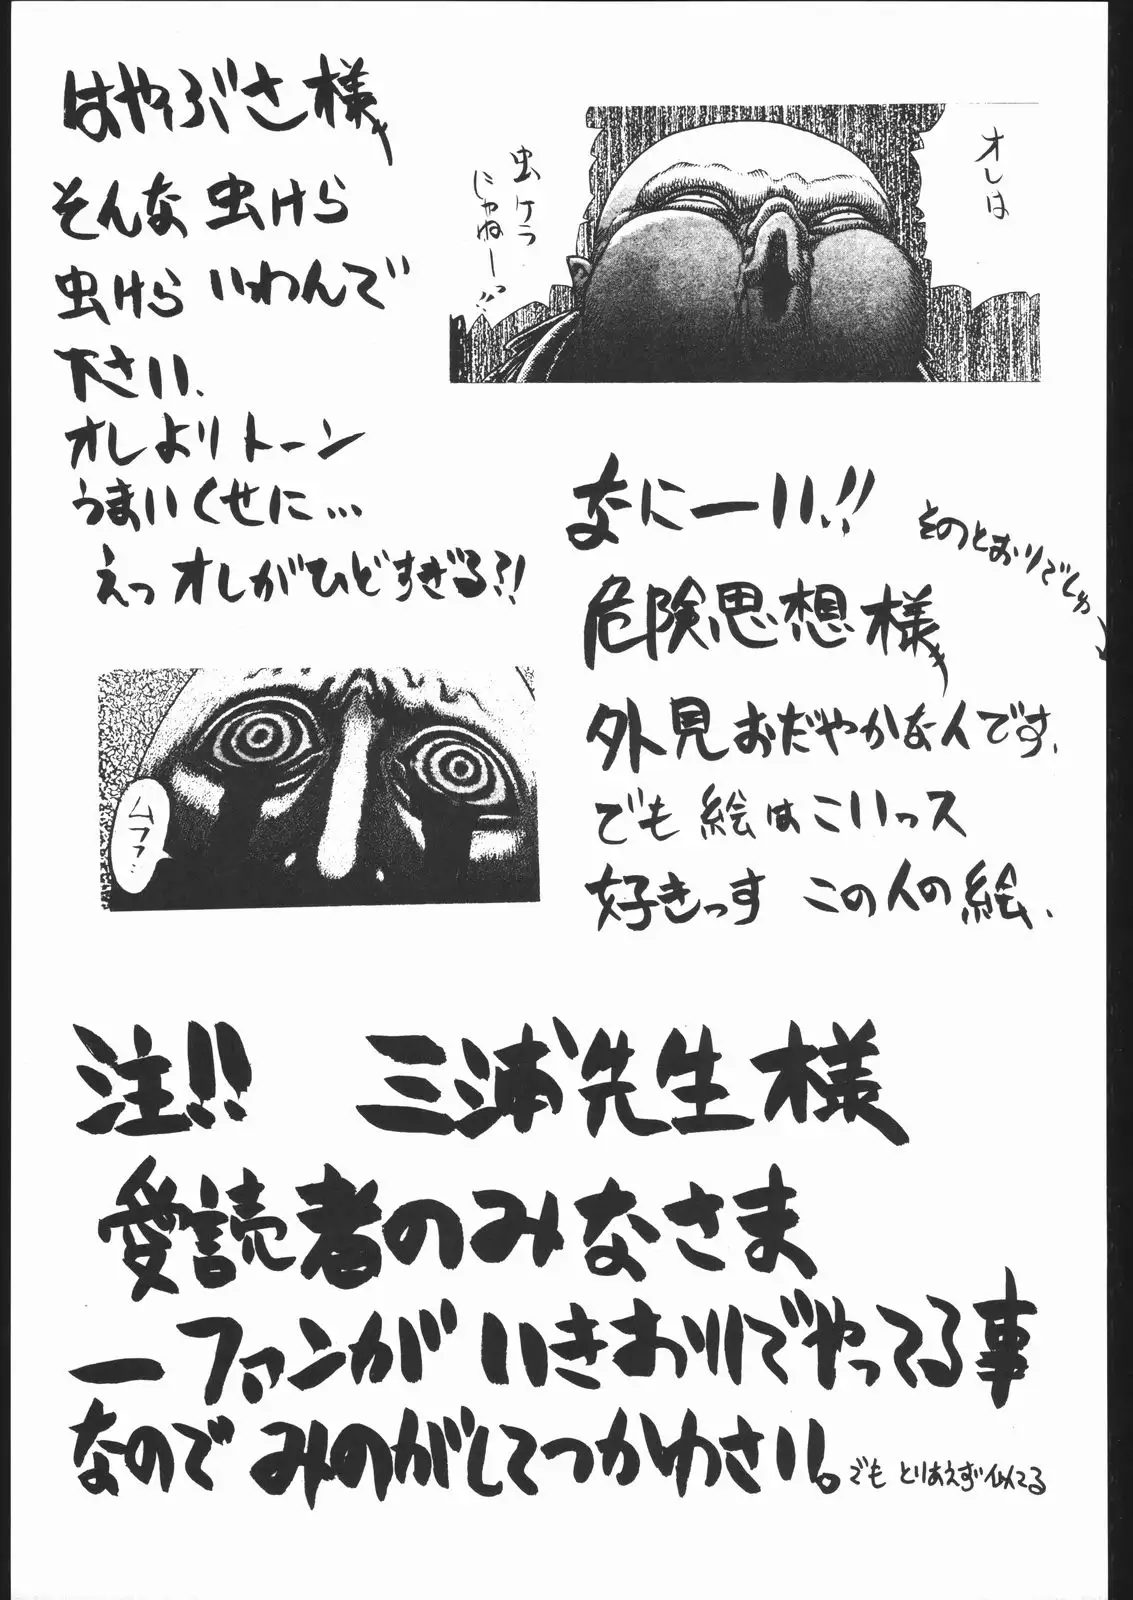 はやぶさ様
そんな虫けら
虫けら いわんで
下さい、
オレよりトーン
うまいくせに…
えっオレがひどすぎる?!
オレは
虫ケラ
じゃねー!!
なにーい!!
そのとおりでしゅ
危険思想様
外見おだやかな人です、
でも絵はこいっス
好きっす この人の絵、
ムフフ…
注!! 三浦先生様
愛読者のみなさま
一ファンが いきおいでやってる事
なので みのがしてつかわさい。
でも とりあえず似てる